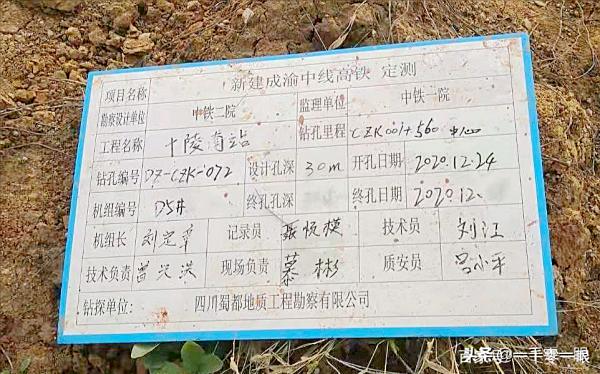 项目名称 新建成渝中线高铁 定测
勘察设计单位 中铁二院 监理单位 中铁一院
工程名称 十陵南站 钻孔里程 CZK001+560
钻孔编号 DZ-CZK-072 设计孔深 30m 开孔日期 2020.12.24
机组编号 D5# 终孔孔深 终孔日期 2020.12.
机组长 刘定军 记录员 技术员 刘江
技术负责 曾兴洪 现场负责 慕彬 质安员 吕小平
钻探单位: 四川蜀都地质工程勘察有限公司
头条@一手要一眼